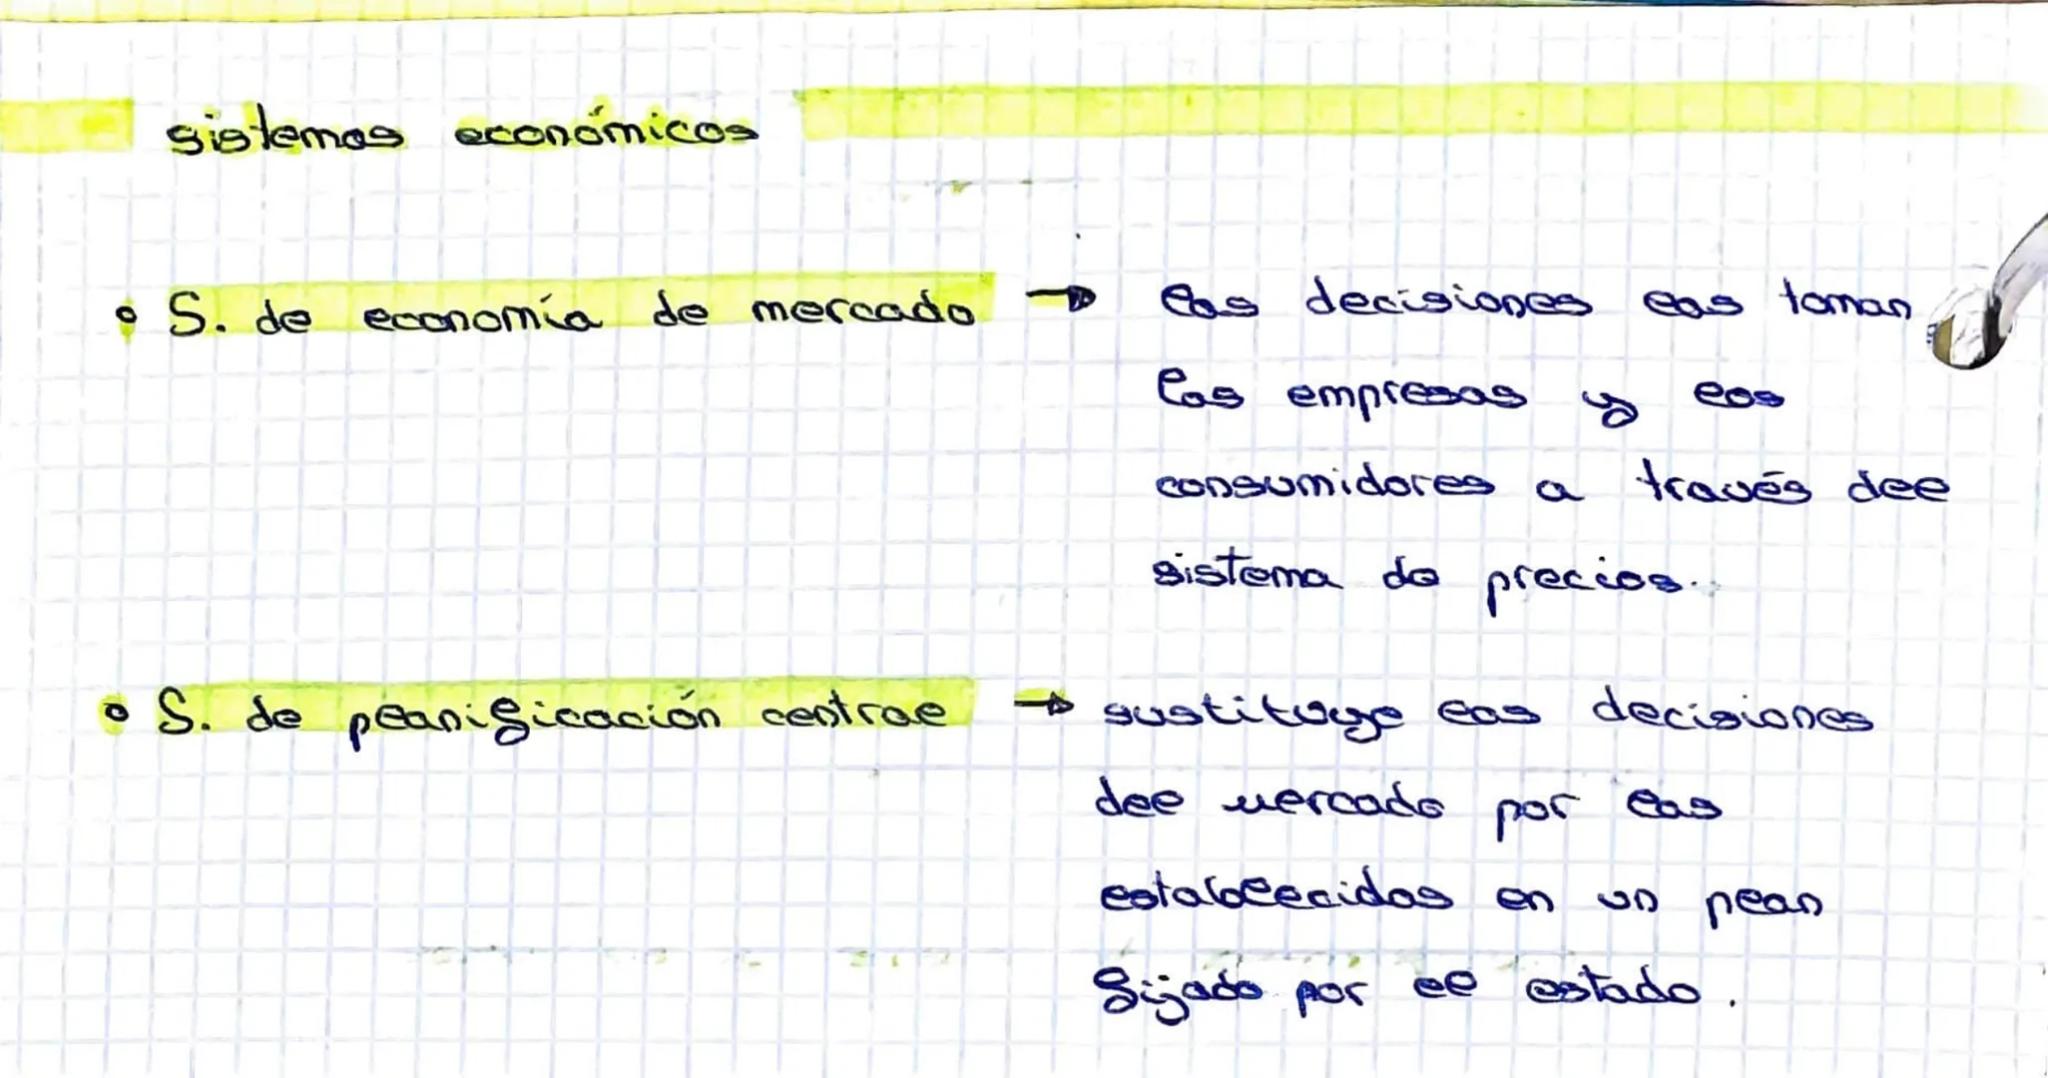 sistemas económicos
• S. de economía de mercado → las decisiones las toman
las empresas y los
consumidores a través del
sistema de precios.
• S. de planificación central → sustituye las decisiones
del mercado por las
establecidas en un plan
fijado por el estado.